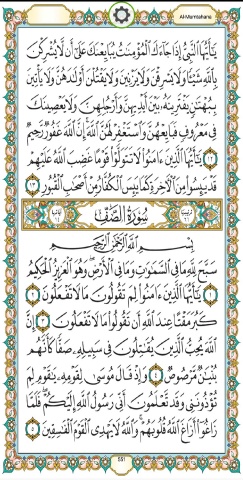 Al-Mumtahana
يَٰٓأَيُّهَا ٱلنَّبِيُّ إِذَا جَآءَكَ ٱلْمُؤْمِنَٰتُ يُبَايِعْنَكَ عَلَىٰٓ أَن لَّا يُشْرِكْنَ
بِٱللَّهِ شَيْـًٔا وَلَا يَسْرِقْنَ وَلَا يَزْنِينَ وَلَا يَقْتُلْنَ أَوْلَٰدَهُنَّ وَلَا يَأْتِينَ
بِبُهْتَٰنٍ يَفْتَرِينَهُۥ بَيْنَ أَيْدِيهِنَّ وَأَرْجُلِهِنَّ وَلَا يَعْصِينَكَ
فِى مَعْرُوفٍ فَبَايِعْهُنَّ وَٱسْتَغْفِرْ لَهُنَّ ٱللَّهَ إِنَّ ٱللَّهَ غَفُورٌ رَّحِيمٌ
١٢ يَٰٓأَيُّهَا ٱلَّذِينَ ءَامَنُوا۟ لَا تَتَوَلَّوْا۟ قَوْمًا غَضِبَ ٱللَّهُ عَلَيْهِمْ
قَدْ يَئِسُوا۟ مِنَ ٱلْءَاخِرَةِ كَمَا يَئِسَ ٱلْكُفَّارُ مِنْ أَصْحَٰبِ ٱلْقُبُورِ ١٣
سُورَةُ الصَّفِّ
بِسْمِ ٱللَّهِ ٱلرَّحْمَٰنِ ٱلرَّحِيمِ
سَبَّحَ لِلَّهِ مَا فِى ٱلسَّمَٰوَٰتِ وَمَا فِى ٱلْأَرْضِ وَهُوَ ٱلْعَزِيزُ ٱلْحَكِيمُ
١ يَٰٓأَيُّهَا ٱلَّذِينَ ءَامَنُوا۟ لِمَ تَقُولُونَ مَا لَا تَفْعَلُونَ ٢
كَبُرَ مَقْتًا عِندَ ٱللَّهِ أَن تَقُولُوا۟ مَا لَا تَفْعَلُونَ ٣ إِنَّ
ٱللَّهَ يُحِبُّ ٱلَّذِينَ يُقَٰتِلُونَ فِى سَبِيلِهِۦ صَفًّا كَأَنَّهُم
بُنْيَٰنٌ مَّرْصُوصٌ ٤ وَإِذْ قَالَ مُوسَىٰ لِقَوْمِهِۦ يَٰقَوْمِ لِمَ
تُؤْذُونَنِى وَقَد تَّعْلَمُونَ أَنِّى رَسُولُ ٱللَّهِ إِلَيْكُمْ فَلَمَّا
زَاغُوٓا۟ أَزَاغَ ٱللَّهُ قُلُوبَهُمْ وَٱللَّهُ لَا يَهْدِى ٱلْقَوْمَ ٱلْفَٰسِقِينَ ٥
551